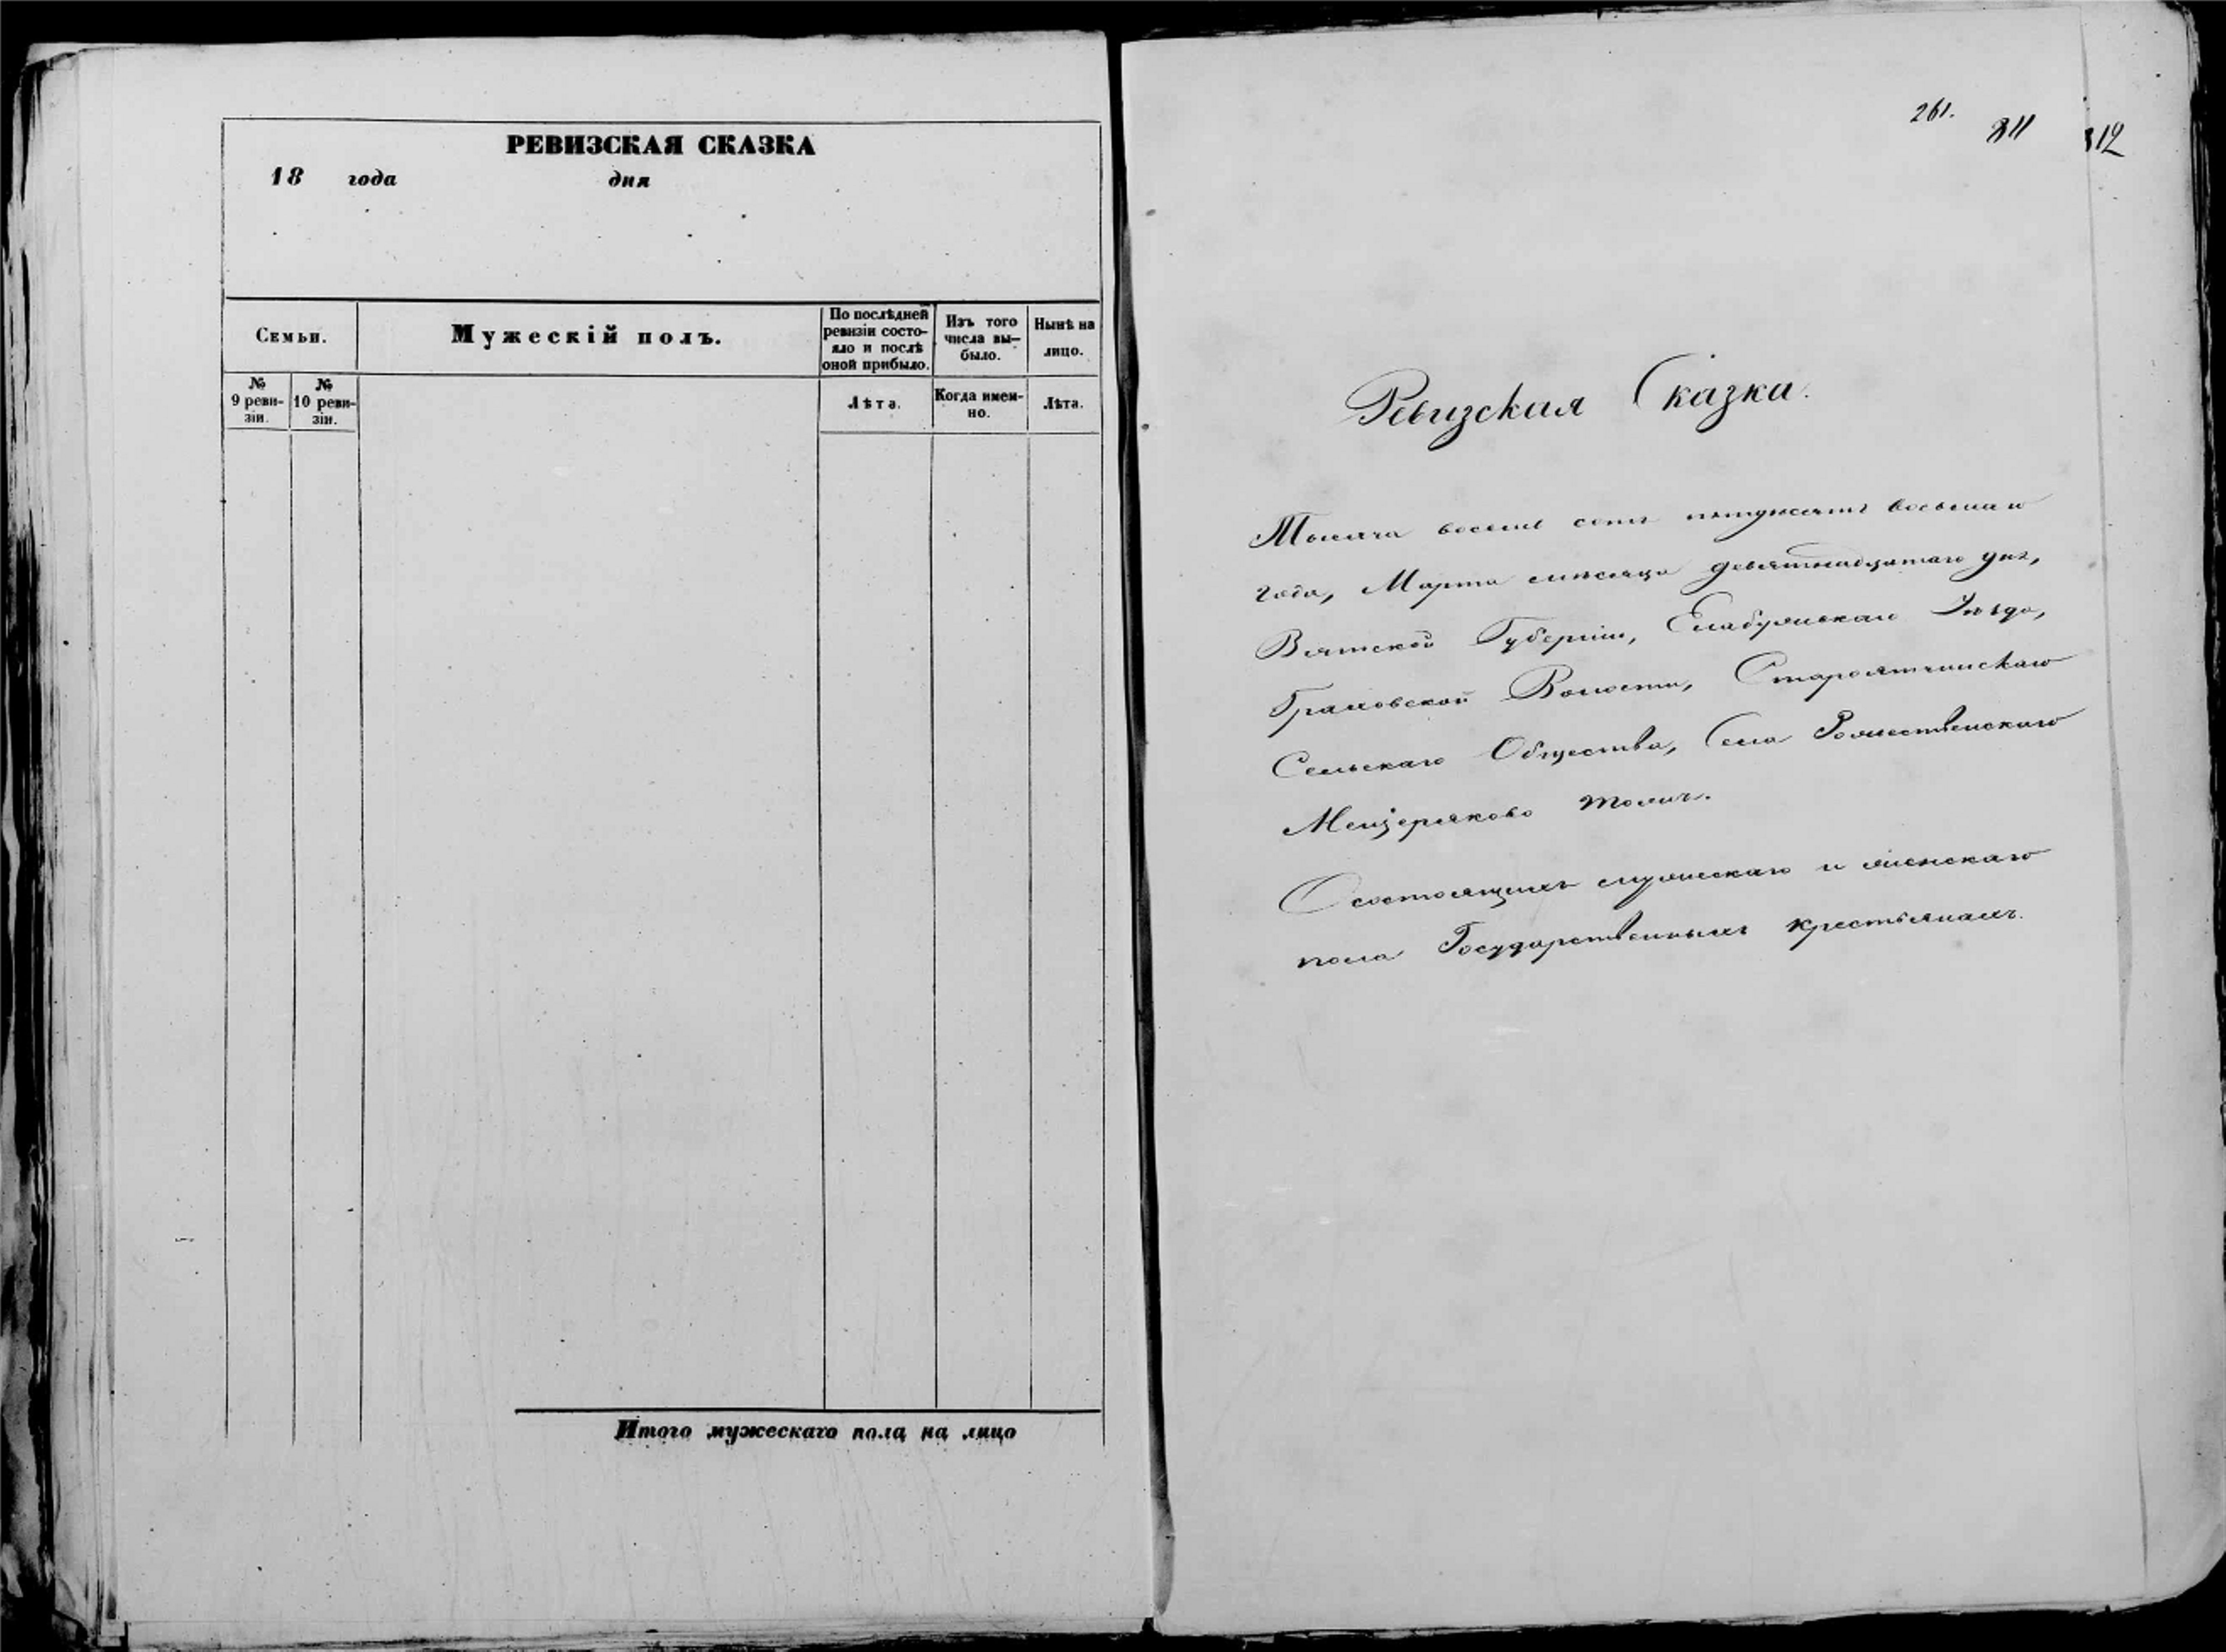 РЕВИЗСКАЯ СКАЗКА
18 года дня
Семьи.
Мужескій полъ.
По послѣдней
ревизіи состо-
яло и послѣ
оной прибыло.
Изъ того
числа вы-
было.
Нынѣ на
лицо.
№
9 реви-
зіи.
№
10 реви-
зіи.
Лѣта.
Когда имен-
но.
Лѣта.
Итого мужескаго пола на лицо
261. 311 312
Ревизская Сказка.
Тысяча восемь сотъ пятдесятъ восьмаго
года, Марта мѣсяца девятнадцатаго дня,
Вятской Губерніи, Елабужскаго Уѣзда,
Граховской Волости, Староятчинскаго
Сельскаго Общества, Села Рожественскаго
Мещеряково тожъ.
О состоящихъ мужескаго и женскаго
пола Государственныхъ крестьянахъ.